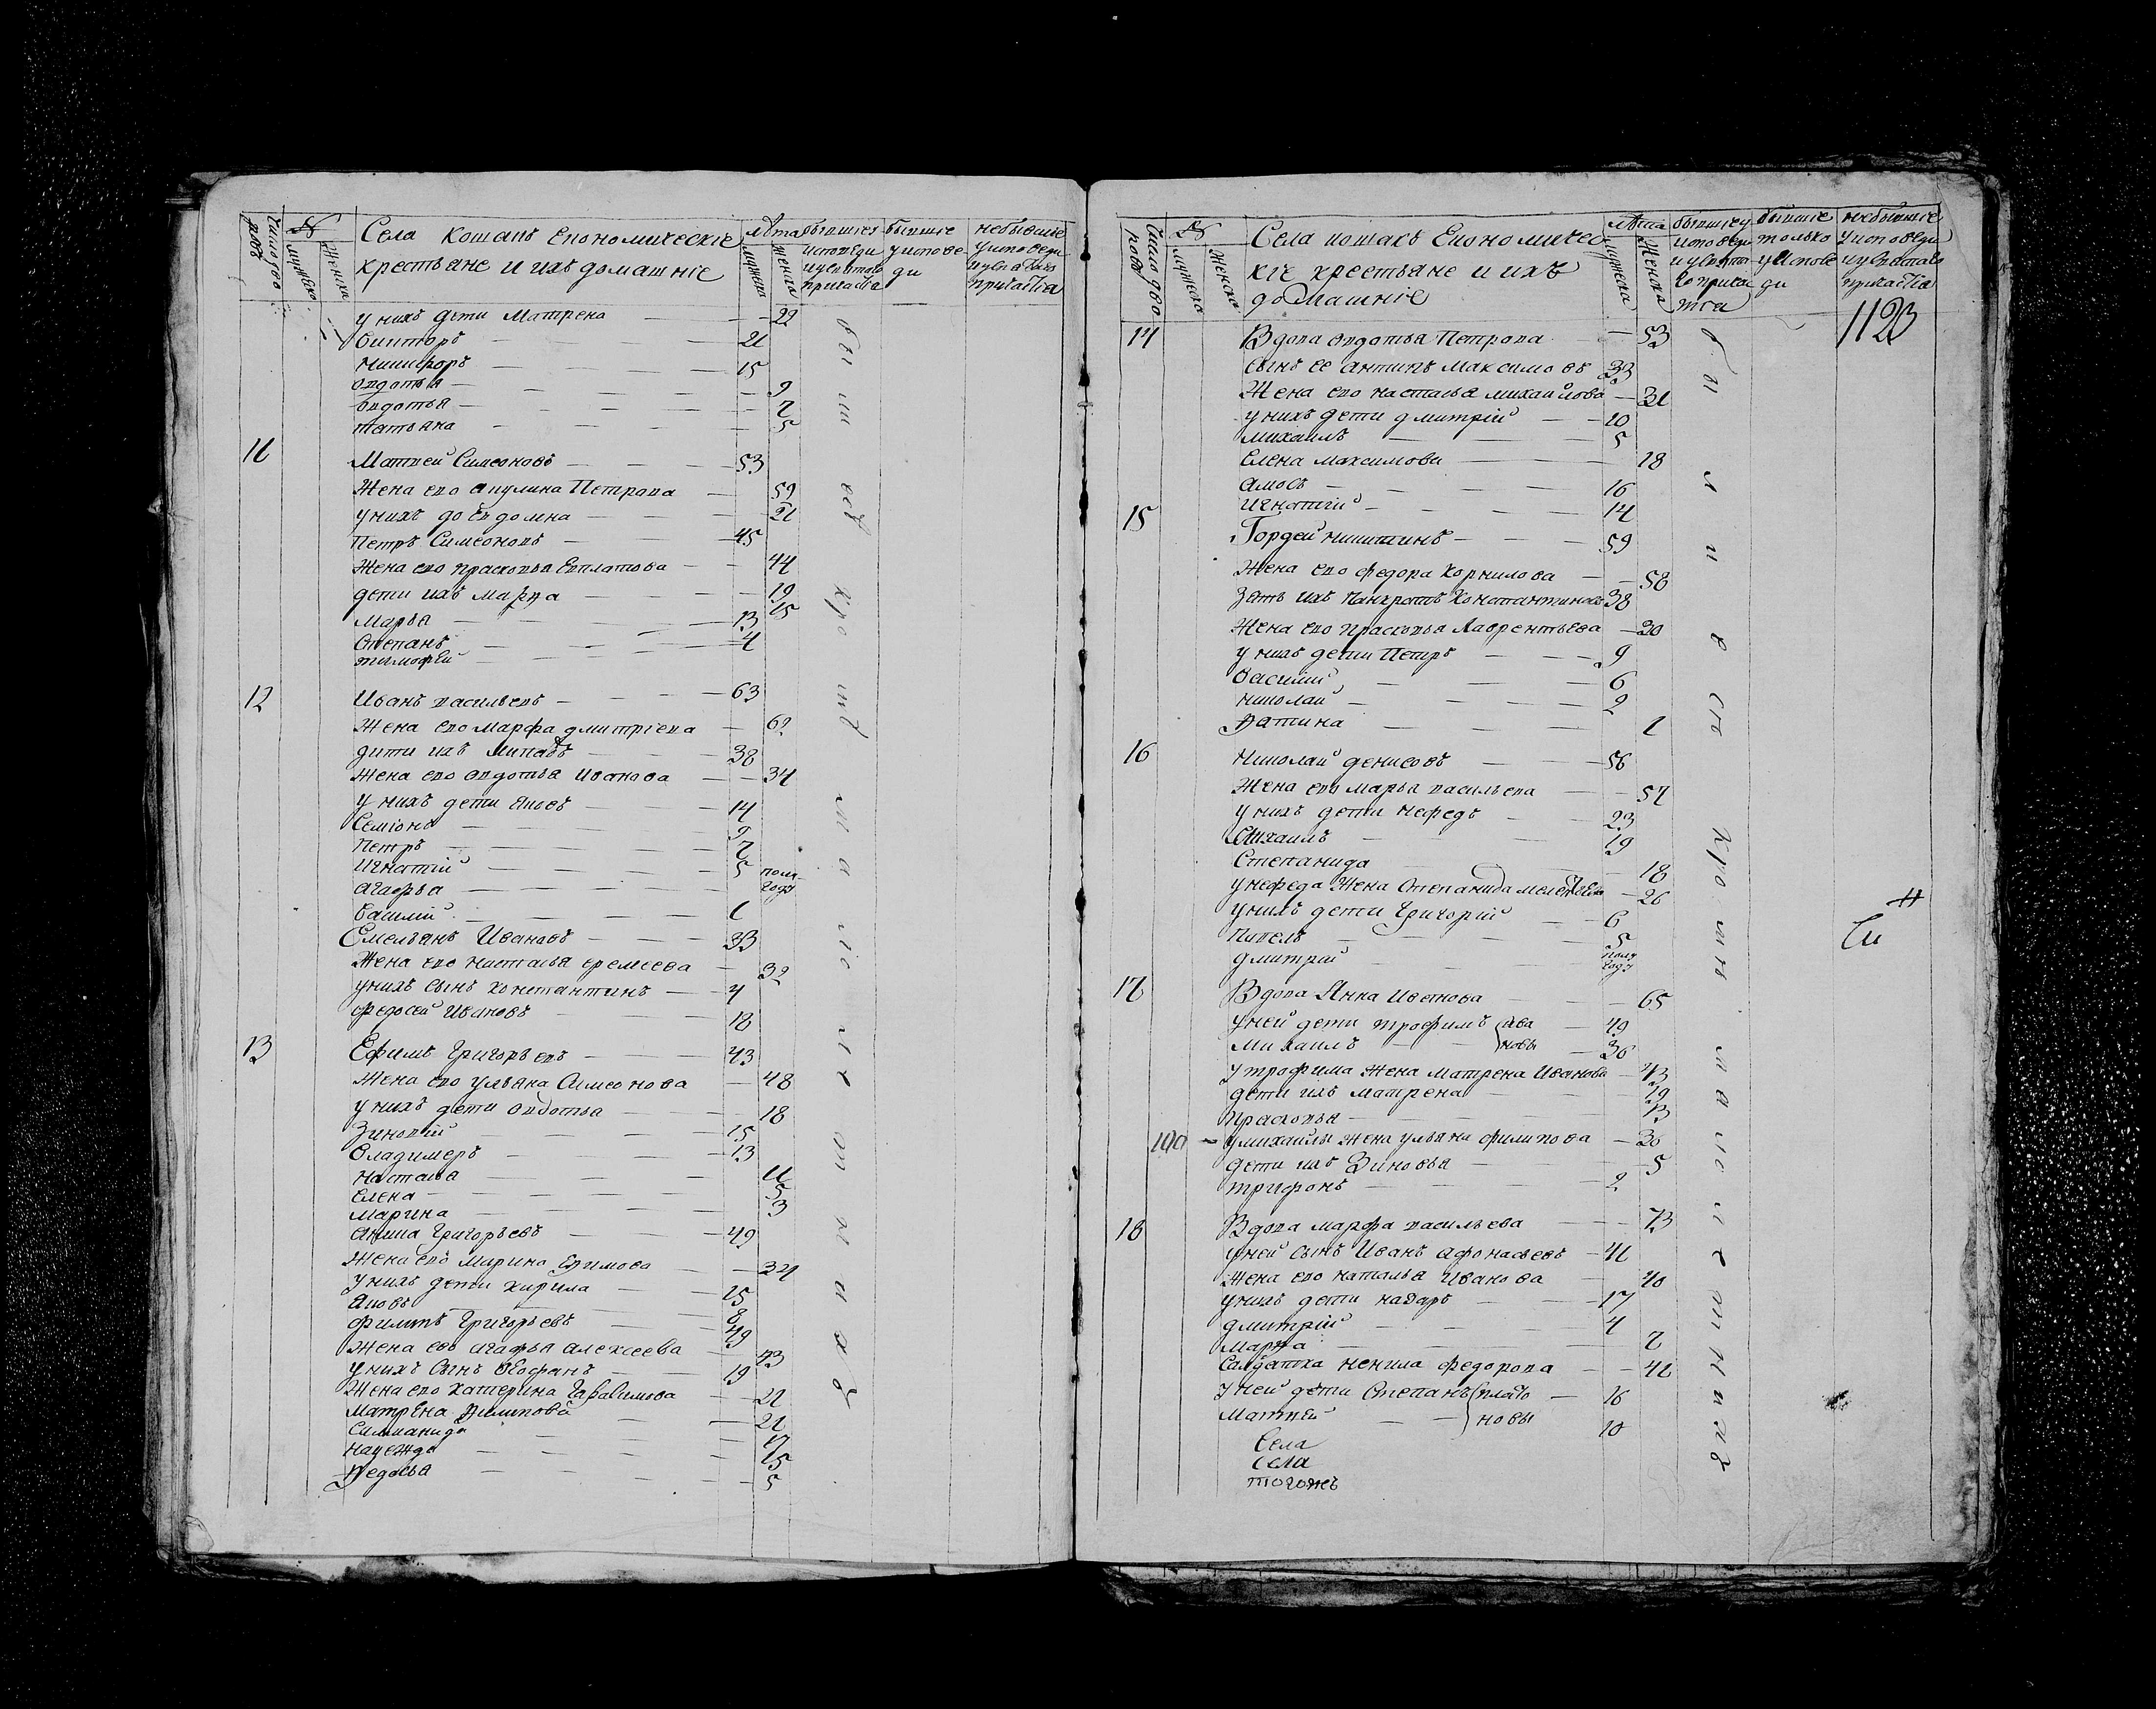 Число дво
ровъ
№
Мужеска
Женска
Села Кошакъ Економическіе
крестьяне и ихъ домашніе
лѣта
Мужеска
Женска
бывшіе у
исповеди
и у святаго
причастія
бывшіе
у испове
ди
небывшіе
у исповеди
и у святаго
причастія
у нихъ дети Матрена 22
Викторъ 21
Никифоръ 15
Овдотья 9
Овдотья 7
Татьяна 5
11 Матвей Симеоновъ 53
Жена ево Акулина Петрова 59
у нихъ дочь Домна 21
Петръ Симеоновъ 45
Жена ево Прасковья Евплатова 44
дети ихъ Марфа 19
Марья 15
Степанъ 13
Тимофей 4
12 Иванъ Васильевъ 63
Жена ево Марфа Дмитріева 62
дети ихъ 38
Жена ево Овдотья Иванова 34
у нихъ дети Яковъ 14
Семіонъ 9
Петръ 7
Игнатій 5
Агафья полу
году
Василій 1
Емельянъ Ивановъ 33
Жена ево Настасья Еремеева 32
у нихъ сынъ Константинъ 4
Федосей Ивановъ 18
13 Ефимъ Григорьевъ 43
Жена ево Ульяна Симеонова 48
у нихъ дети Овдотья 18
Зиновій 15
Владимеръ 13
Настасья 11
Елена 5
Марина 3
Григорьевъ 49
Жена ево Марина Ефимова 34
у нихъ дети Кирила 15
Яковъ 8
Филипъ Григорьевъ 49
Жена ево Агафья Алексеева 43
у нихъ сынъ Феофанъ 19
Жена ево Катерина Гарасимова 22
Матрена Филипова 21
17
Надежда 15
Федосья 5
Число дво
ровъ
№
Мужеска
Женска
Села Кошакъ Економичес
кіе крестьяне и ихъ
домашніе
лѣта
Мужеска
Женска
бывшіе у
исповеди
и у святa
го прича
тся
бывшіе
только
у испове
ди
небывшіе
у исповеди
и у святаго
причастія
1123
14 Вдова Овдотья Петрова 53
сынъ ее Антипъ Максимовъ 33
Жена ево Настасья Михайлова 31
у нихъ дети Дмитрій 10
Михаилъ 5
Елена Максимова 18
Амосъ 16
Игнатій 14
15 Гордей Никитинъ 59
Жена ево Федора Корнилова 58
Зять ихъ Панкратъ Константиновъ 38
Жена ево Прасковья Лаврентьева 30
у нихъ дети Петръ 9
Василій 6
Николай 2
1
16 Николай Денисовъ 56
Жена ево Марья Васильева 57
у нихъ дети Нефедъ 23
Михаилъ 19
Степанида 18
у Нефеда Жена Степанида 26
у нихъ дети Григорій 6
Павелъ 5
Дмитрій полу
году
17 Вдова Анна Иванова 65
у ней дети Трофимъ Ива 49
Михаилъ новы 36
у Трофима Жена Матрена Иванова 43
дети ихъ Матрена 19
Прасковья 13
100 у Михайлы Жена Ульяна Филипова 30
дети ихъ Зиновья 5
Трифонъ 2
18 Вдова Марфа Васильева 73
у ней сынъ Иванъ Афонасьевъ 41
Жена ево Наталья Иванова 40
у нихъ дети Назаръ 17
Дмитрій 4
Марфа 7
Салдатка Ненила Федорова 41
у ней дети Степанъ Плато 16
Матвей новы 10
Села
Села
тогожъ